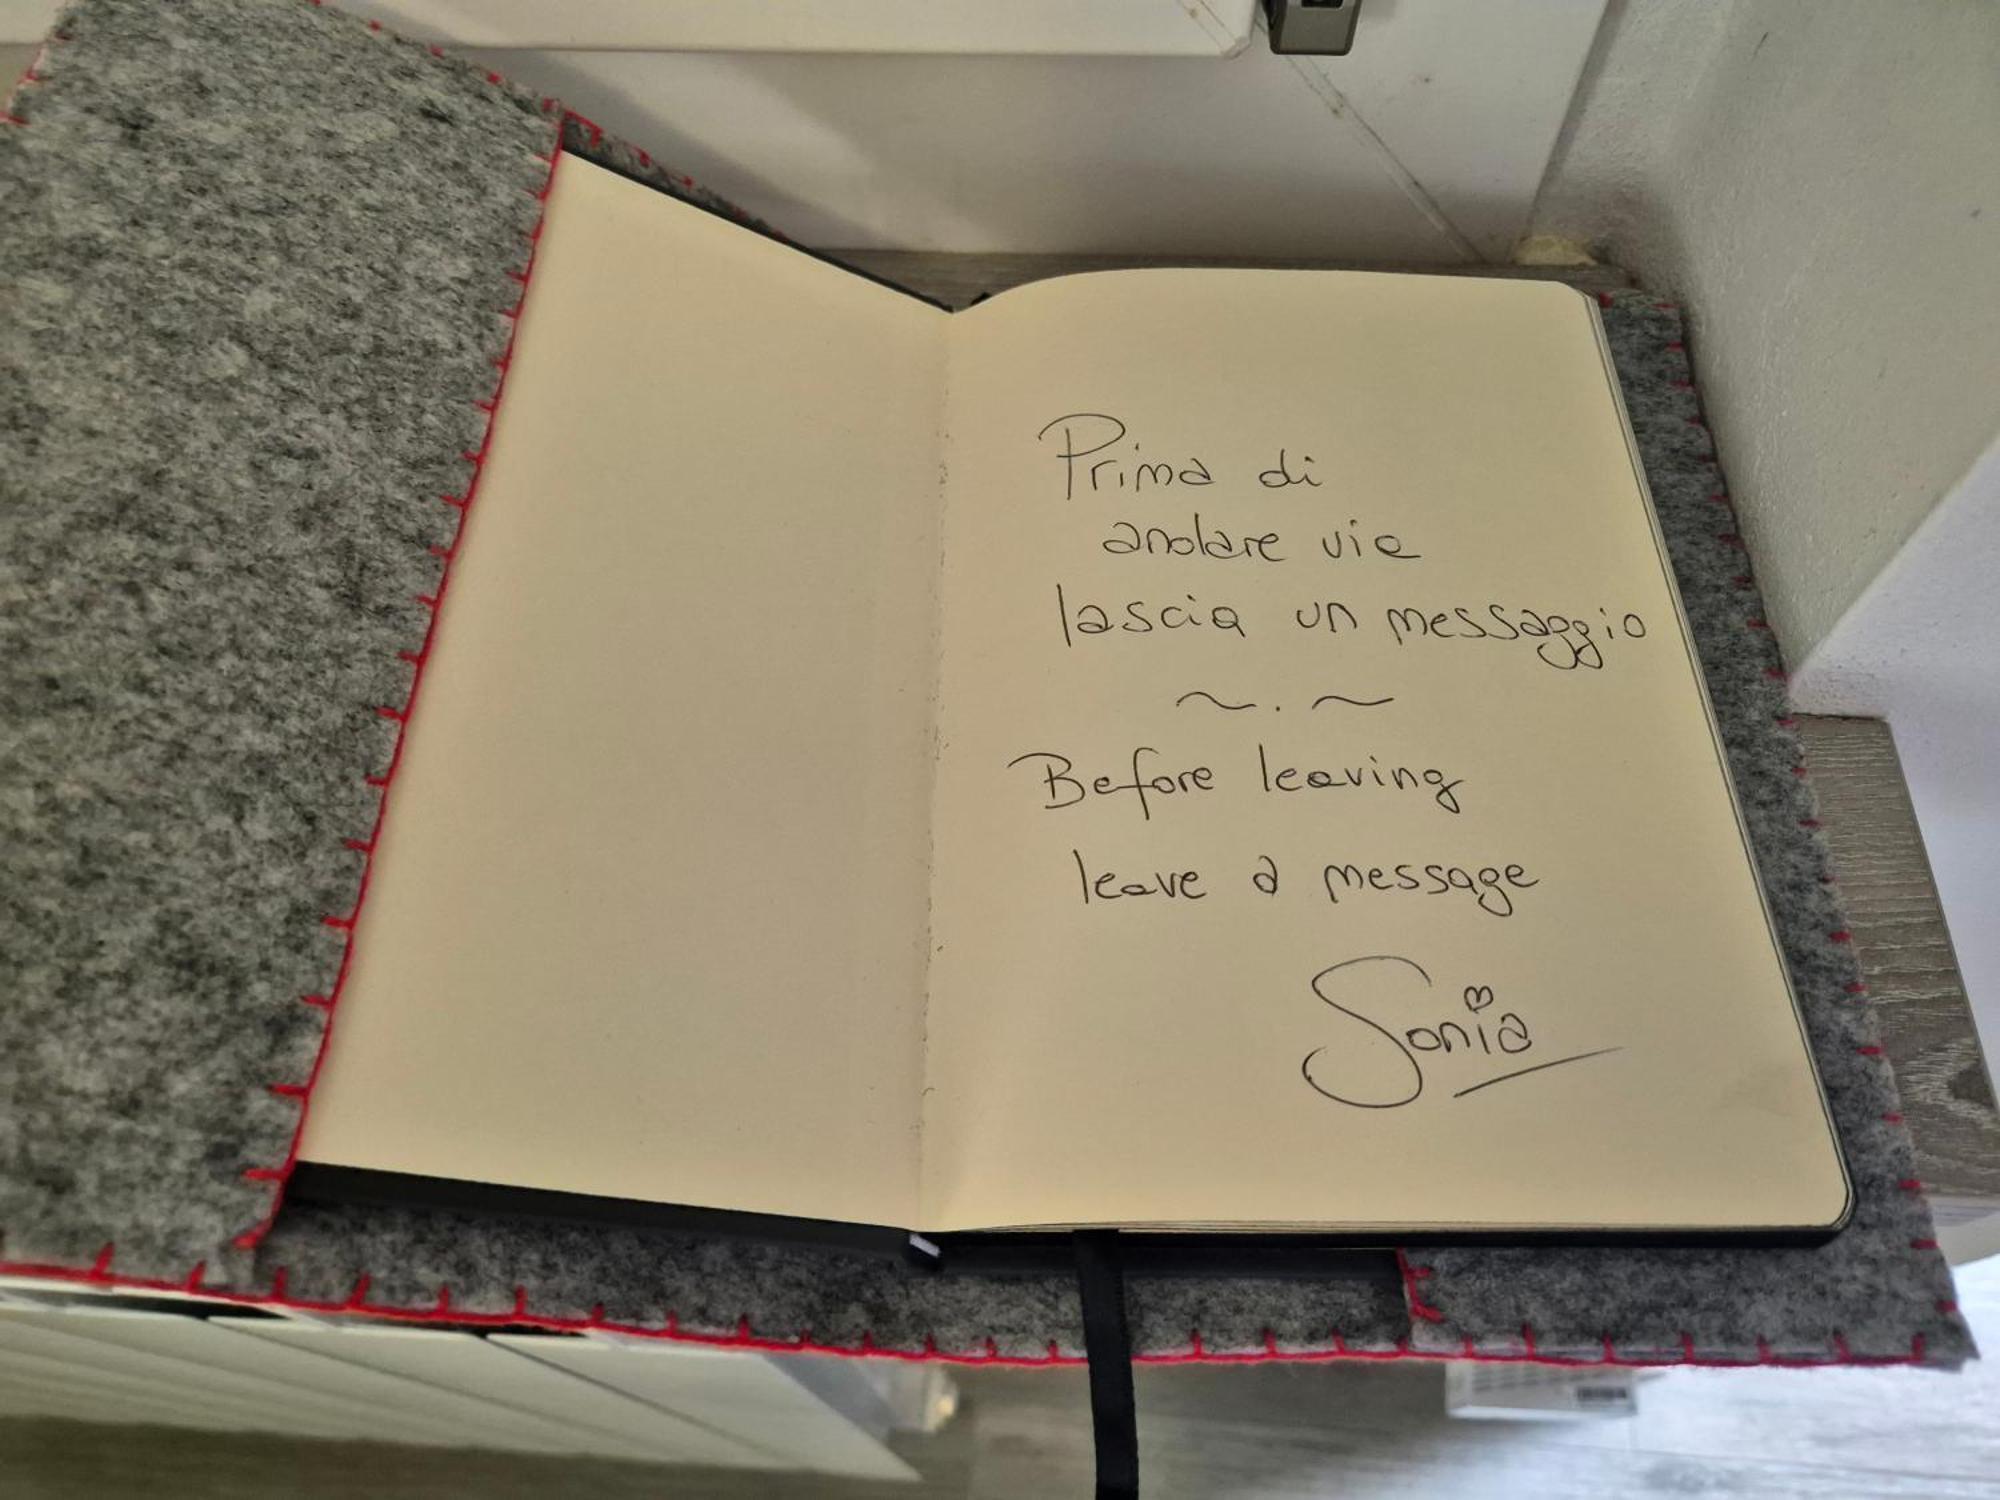 Prima di
andare via
lascia un messaggio
~.~
Before leaving
leave a message
Sonia